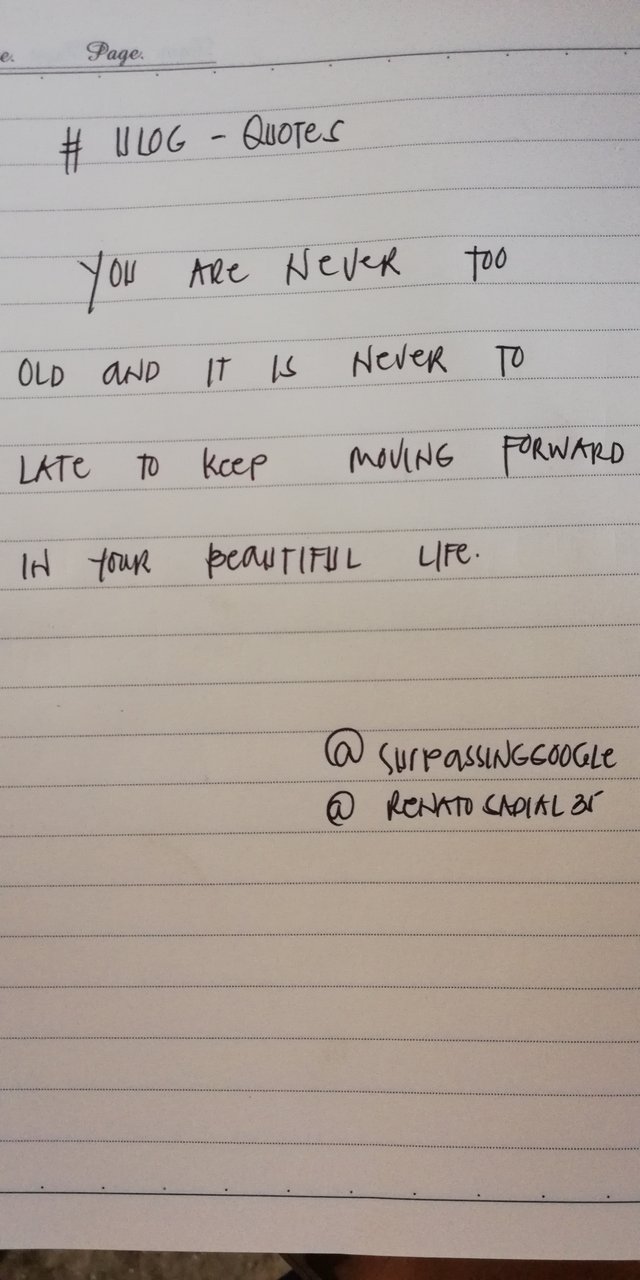 e. Page.
# ULOG - QUOTES
YOU ARE NEVER TOO
OLD AND IT IS NEVER TO
LATE TO KEEP MOVING FORWARD
IN YOUR BEAUTIFUL LIFE.
@ SURPASSINGGOOGLE
@ RENATOCADIAL35